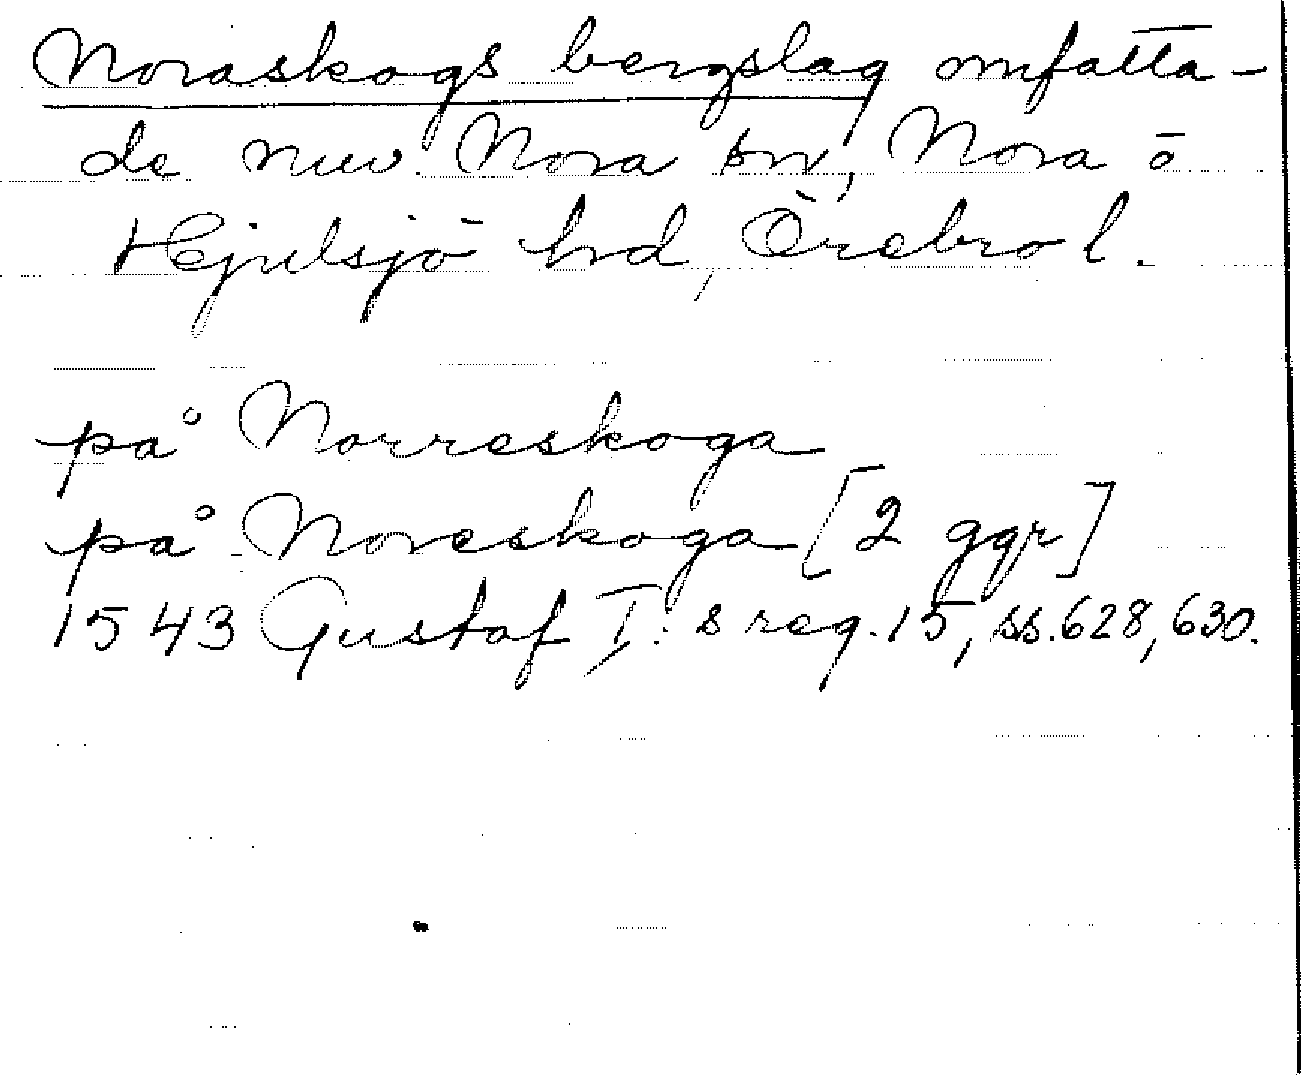 Noraskogs bergslag omfatta-
de nuv. Nora sn, Nora o
Hjulsjö hd, Örebro l.
på Norreskoga
på Noreskoga [2 ggr]
1543 Gustaf I:s reg. 15, ss. 628, 630.